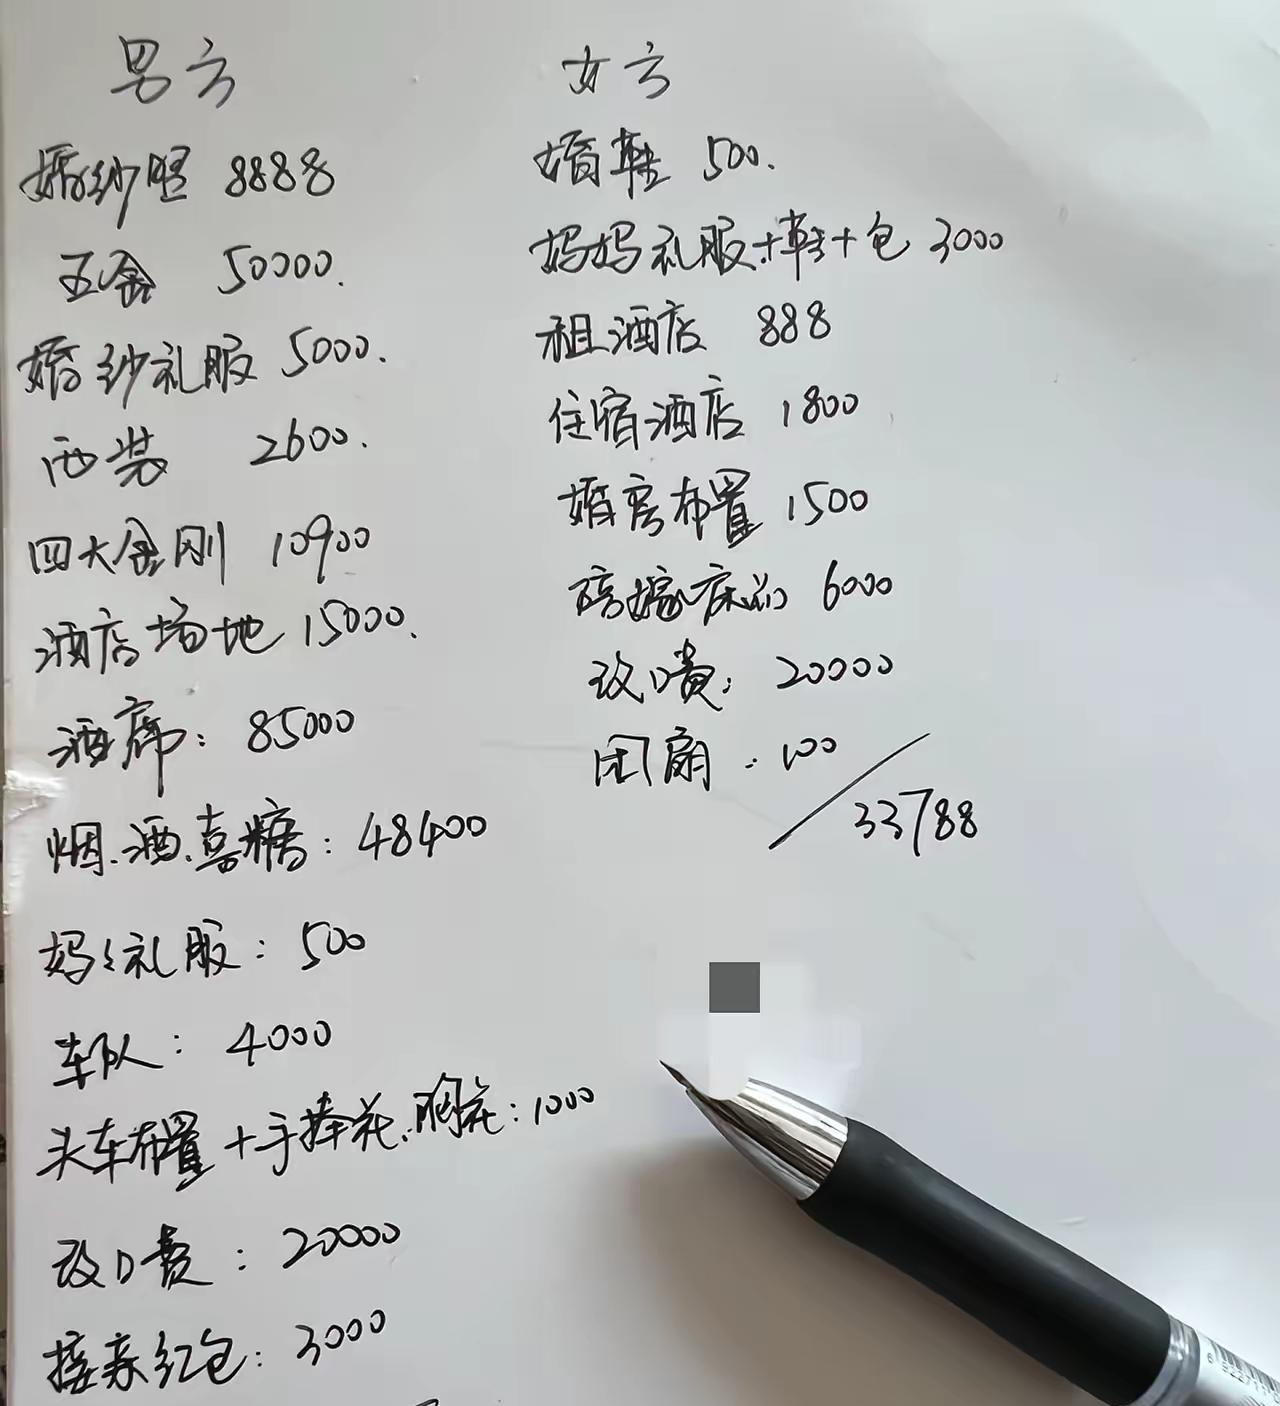 男方
婚纱照 8888
五金 50000.
婚纱礼服 5000.
西装 2600.
四大金刚 10900
酒店场地 15000.
酒席：85000
烟.酒.喜糖：48400
妈妈礼服：500
车队：4000
头车布置+手捧花.胸花：1000
改口费：20000
接亲红包：3000
女方
婚鞋 500.
妈妈礼服+鞋+包 3000
租酒店 888
住宿酒店 1800
婚房布置 1500
陪嫁床品 6000
改口费：20000
团扇：100
33788